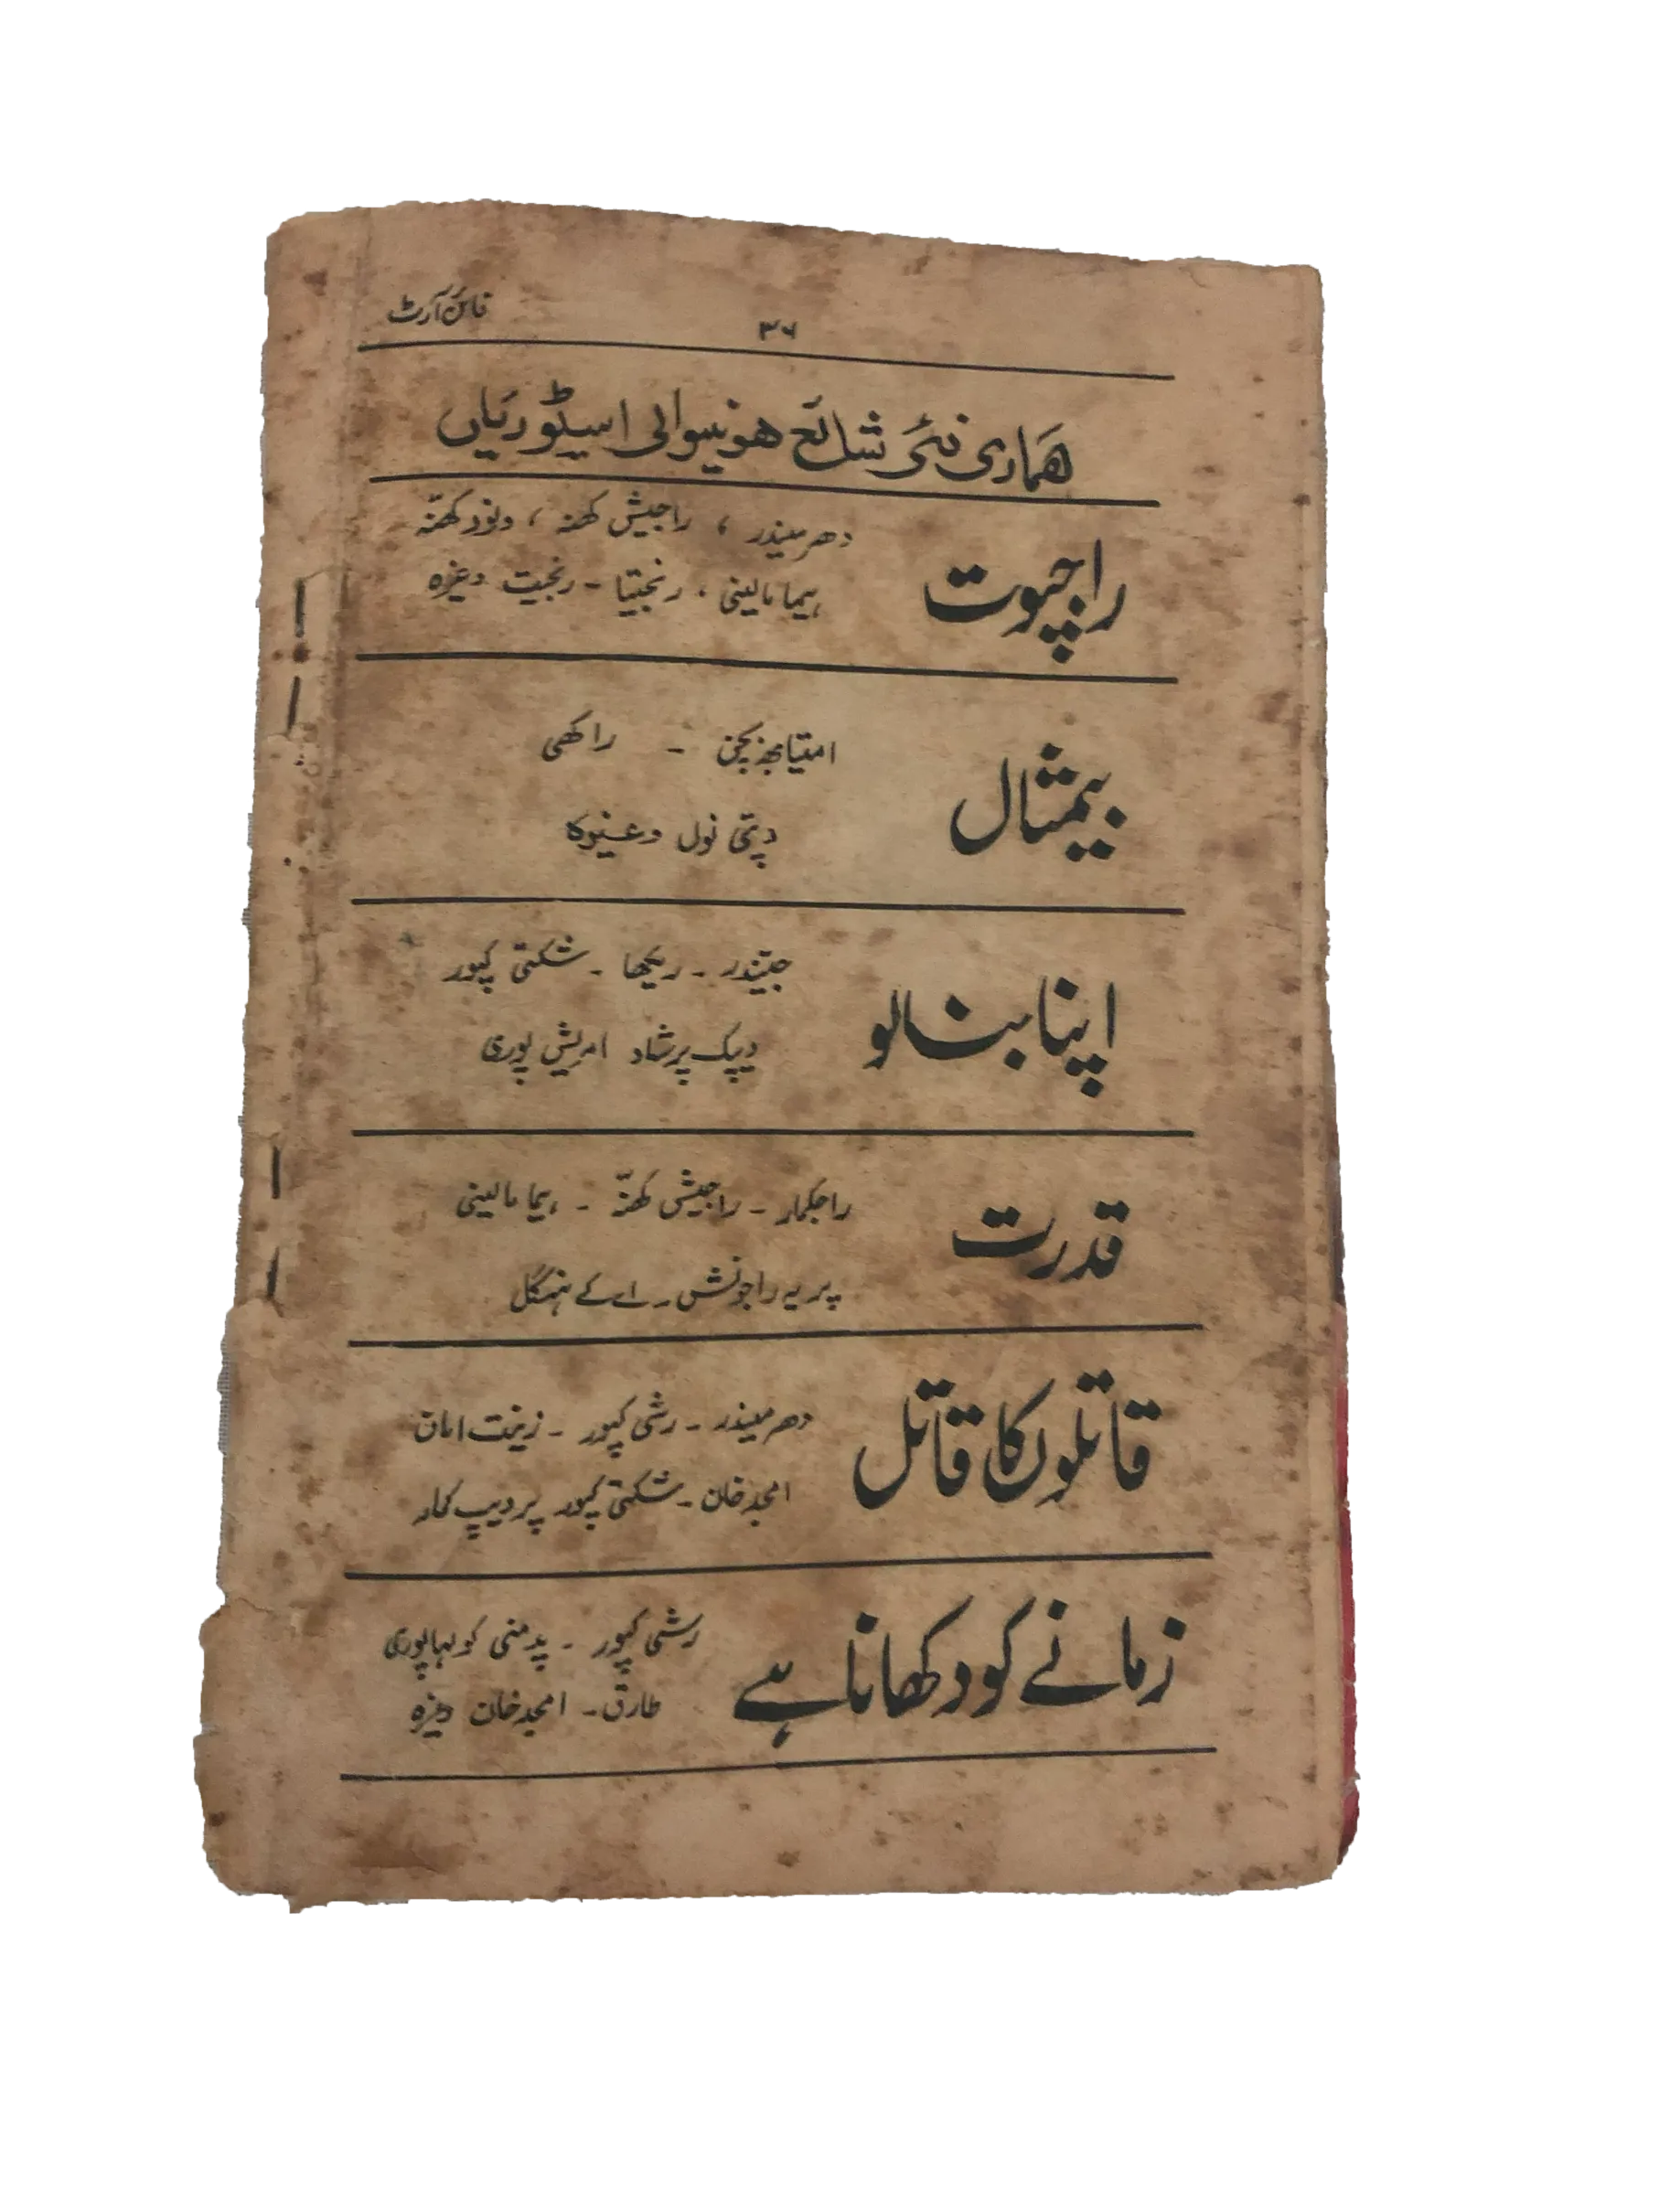 ۳۶ فائن آرٹ
ھماری نئی شائع ھونیوالی اسٹوریاں
راجپوت
دھرمیندر ، راجیش کھنہ ، ونود کھنّہ
ہیما مالینی ، رنجیتا - رنجیت وغیرہ
بیمثال
امتیابھ بچن - راکھی
دپتی نول وغیرہ
اپنا بنا لو
جیتندر - ریکھا - شکتی کپور
دیپک پرشاد امریش پوری
قدرت
راجکمار - راجیش کھنّہ - ہیما مالینی
پریہ راجونش - اے کے ہنگل
قاتلوں کا قاتل
دھرمیندر - رشی کپور - زینت امان
امجد خان - شکتی کپور پردیپ کمار
زمانے کو دکھانا ہے
رشی کپور - پدمنی کولہاپوری
طارق - امجد خان وغیرہ